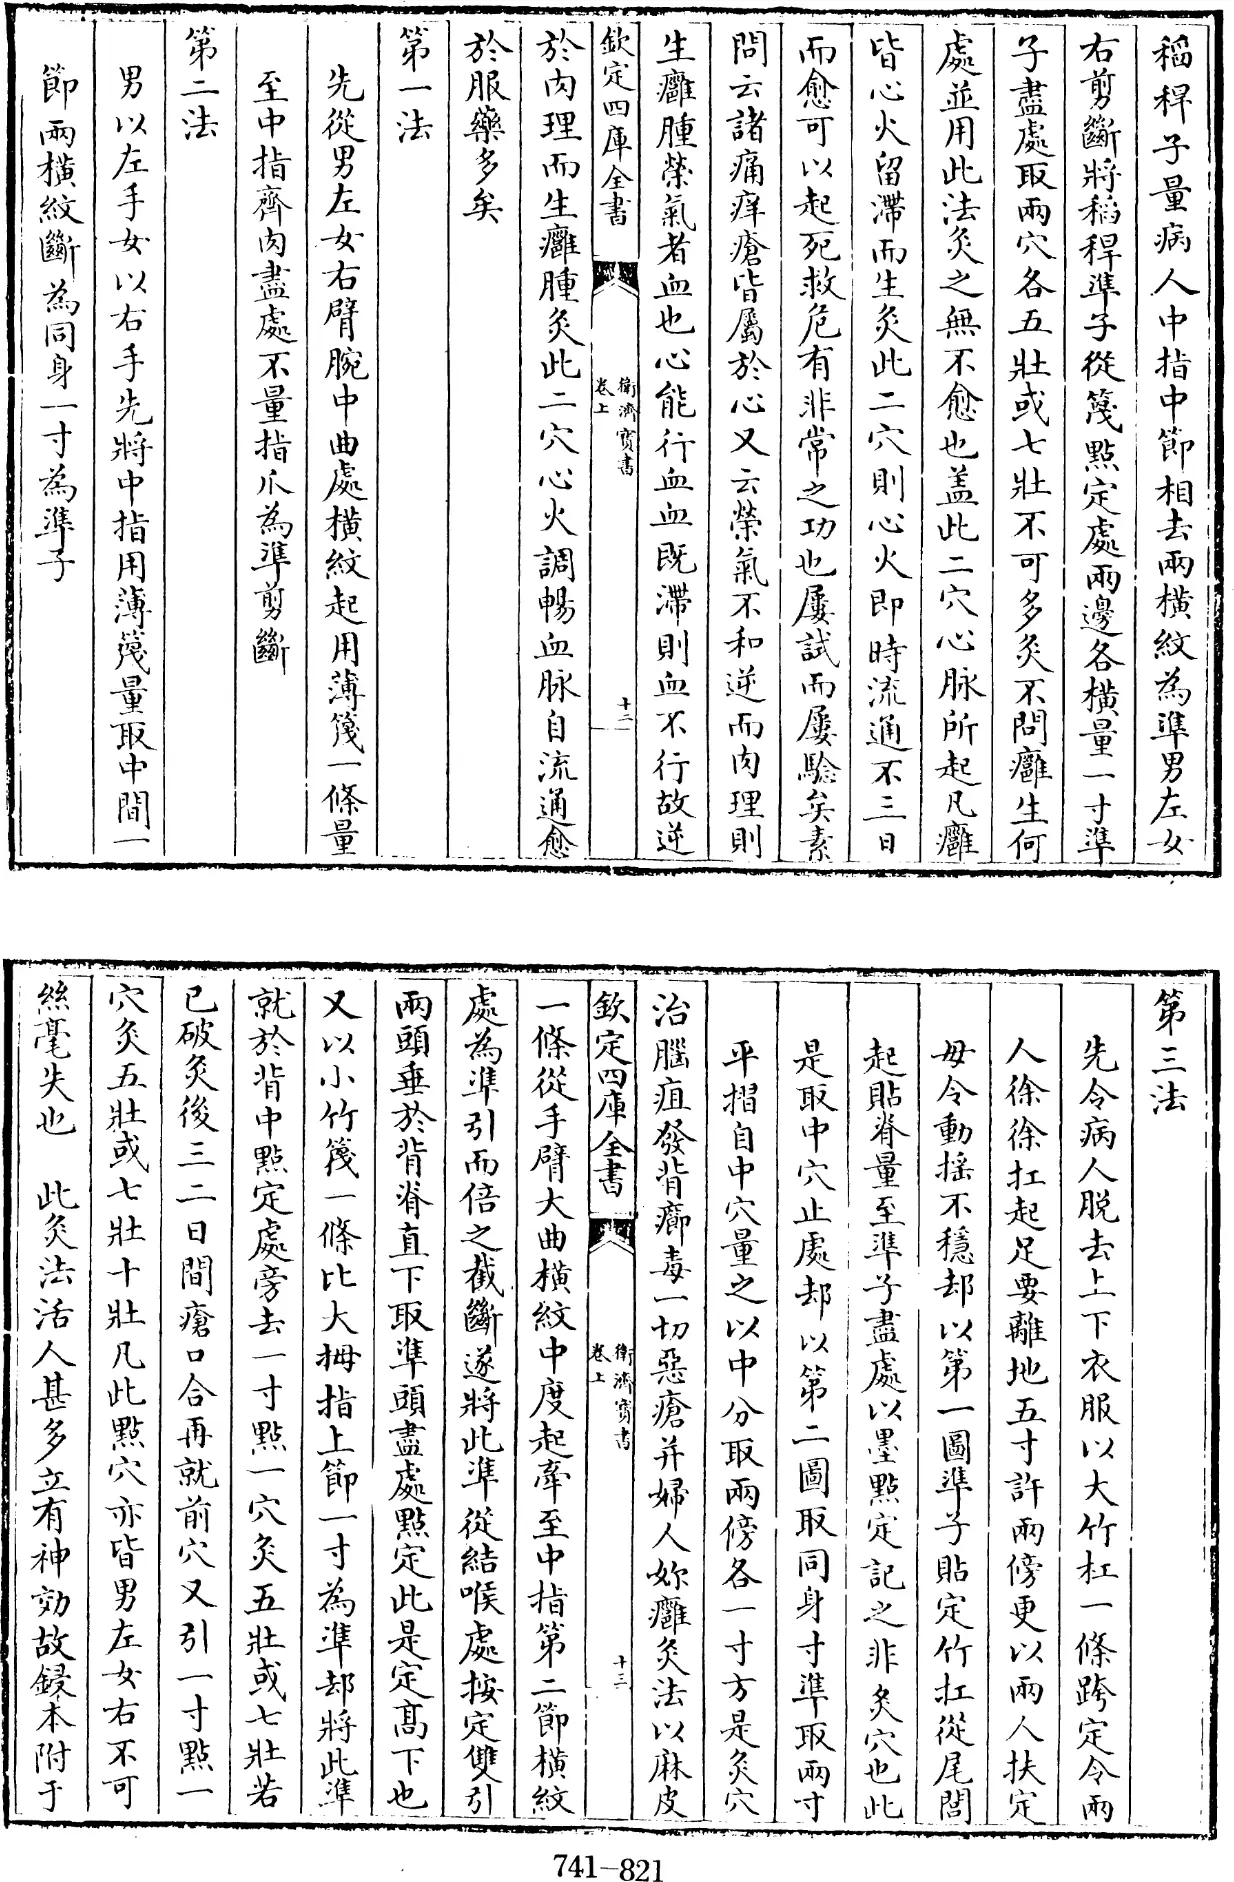 稻稈子量病人中指中節相去兩橫紋為準男左女
右剪斷將稻稈準子從篾點定處兩邊各橫量一寸準
子盡處取兩穴各五壯或七壯不可多灸不問癰生何
處並用此法灸之無不愈也盖此二穴心脉所起凡癰
皆心火留滯而生灸此二穴則心火即時流通不三日
而愈可以起死救危有非常之功也屢試而屢驗矣素
問云諸痛痒瘡皆屬於心又云榮氣不和逆而肉理則
生癰腫榮氣者血也心能行血血既滯則血不行故逆
欽定四庫全書
衛濟寶書
卷上
十二
於肉理而生癰腫灸此二穴心火調暢血脉自流通愈
於服藥多矣
第一法
先從男左女右臂腕中曲處橫紋起用薄篾一條量
至中指齊肉盡處不量指爪為準剪斷
第二法
男以左手女以右手先將中指用薄篾量取中間一
節兩橫紋斷為同身一寸為準子
第三法
先令病人脱去上下衣服以大竹杠一條跨定令兩
人徐徐扛起足要離地五寸許兩傍更以兩人扶定
毋令動搖不穩却以第一圖準子貼定竹扛從尾閭
起貼脊量至準子盡處以墨點定記之非灸穴也此
是取中穴止處却以第二圖取同身寸準取兩寸
平摺自中穴量之以中分取兩傍各一寸方是灸穴
治腦疽發背癤毒一切惡瘡并婦人妳癰灸法以麻皮
欽定四庫全書
衛濟寶書
卷上
十三
一條從手臂大曲橫紋中度起牽至中指第二節橫紋
處為準引而倍之截斷遂將此準從結喉處按定雙引
兩頭垂於背脊直下取準頭盡處點定此是定髙下也
又以小竹篾一條比大拇指上節一寸為準却將此準
就於背中點定處旁去一寸點一穴灸五壯或七壯若
已破灸後三二日間瘡口合再就前穴又引一寸點一
穴灸五壯或七壯十壯凡此點穴亦皆男左女右不可
絲毫失也 此灸法活人甚多立有神効故録本附于
741-821